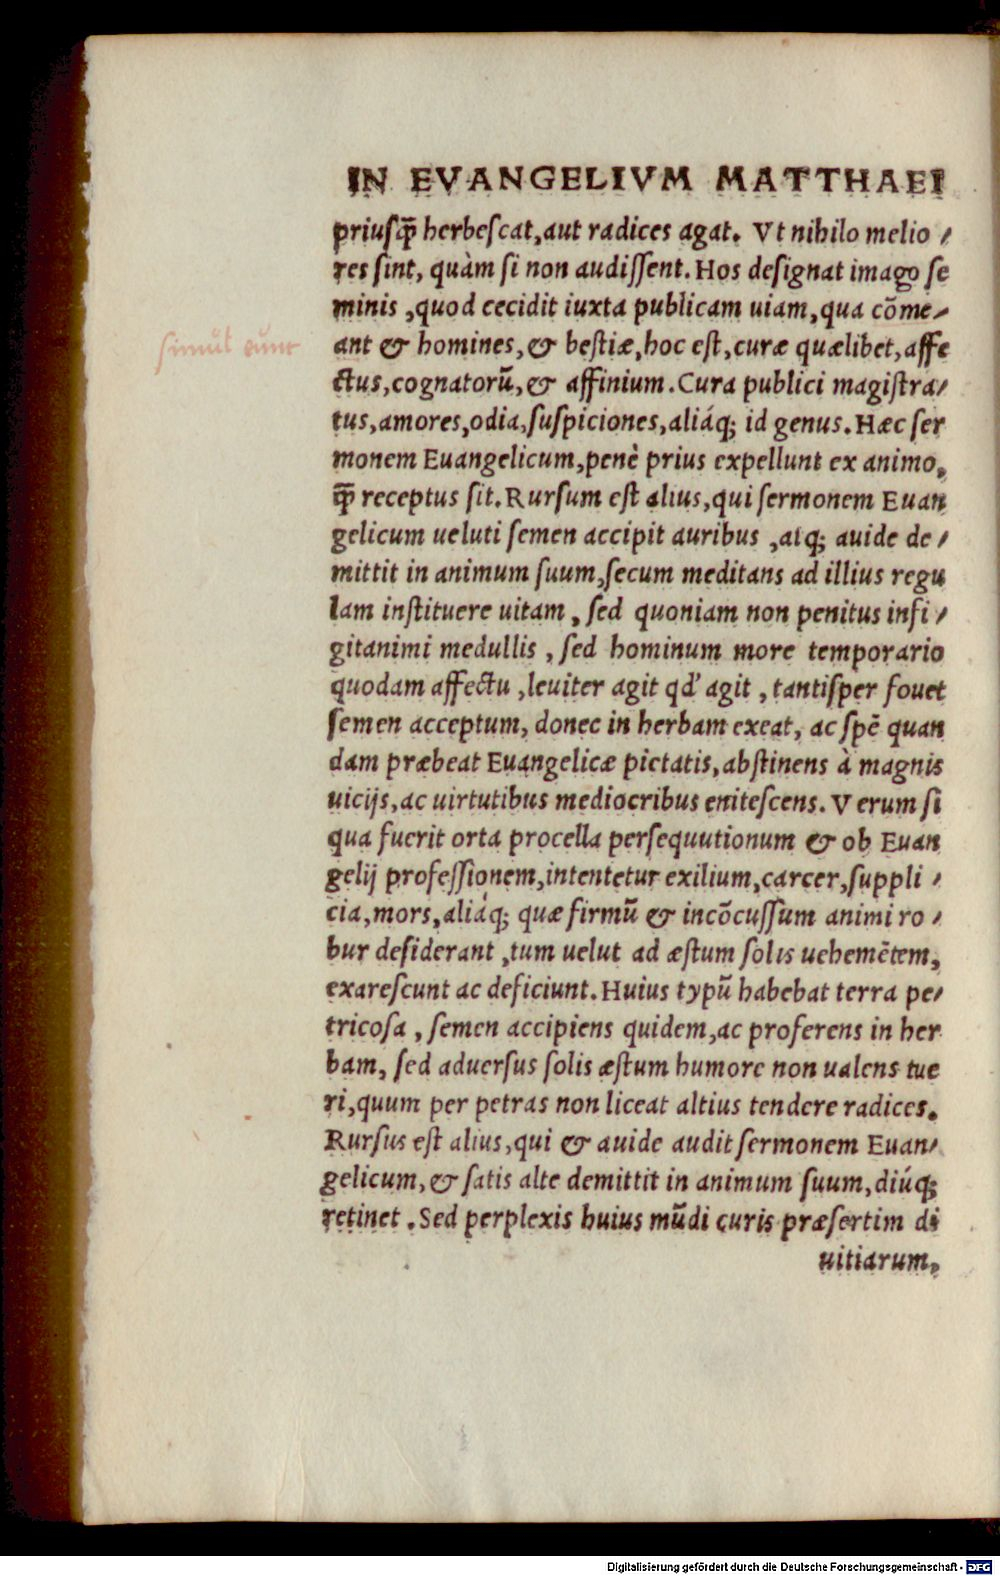 IN EVANGELIVM MATTHAEI
priusꝗ̃ herbescat,aut radices agat. Vt nihilo melio⸗
res sint, quàm si non audissent. Hos designat imago se
minis ,quod cecidit iuxta publicam uiam,qua cõme⸗
ant & homines,& bestiæ,hoc est,curæ quælibet,affe
simul eunt
ctus,cognatorũ,& affinium. Cura publici magistra⸗
tus,amores,odia,suspiciones,aliáq; id genus. Hæc ser
monem Euangelicum,penè prius expellunt ex animo,
ꝗ̃ receptus sit. Rursum est alius,qui sermonem Euan
gelicum ueluti semen accipit auribus ,atq; auide de⸗
mittit in animum suum,secum meditans ad illius regu
lam instituere uitam , sed quoniam non penitus infi⸗
gitanimi medullis , sed hominum more temporario
quodam affectu ,leuiter agit qd' agit , tantisper fouet
semen acceptum, donec in herbam exeat, ac spẽ quan
dam præbeat Euangelicæ pietatis,abstinens à magnis
uicijs,ac uirtutibus mediocribus enitescens. Verum si
qua fuerit orta procella persequutionum & ob Euan
gelij professionem,intentetur exilium,carcer,suppli⸗
cia,mors,aliáq; quæ firmũ & incõcussum animi ro⸗
bur desiderant ,tum uelut ad æstum solis uehemẽtem,
exarescunt ac deficiunt. Huius typũ habebat terra pe⸗
tricosa , semen accipiens quidem,ac proferens in her
bam, sed aduersus solis æstum humore non ualens tue
ri,quum per petras non liceat altius tendere radices.
Rursus est alius,qui & auide audit sermonem Euan⸗
gelicum,& satis alte demittit in animum suum,diúq;
retinet . Sed perplexis huius mũdi curis præsertim di
uitiarum,
Digitalisierung gefördert durch die Deutsche Forschungsgemeinschaft - DFG